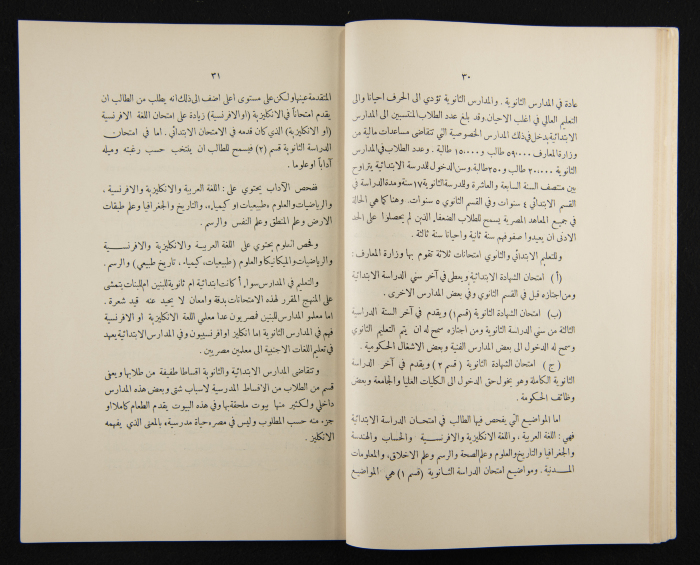 ٣٠
عادة في المدارس الثانوية . والمدارس الثانوية تؤدي الى الحرف احيانا والى
التعليم العالي في اغلب الاحيان وقد بلغ عدد الطلاب المنتسبين الى المدارس
الابتدائية بدخل في ذلك المدارس الخصوصية التي تتقاضى مساعدات مالية من
وزارة المعارف ٥٩٠٠٠ طالب و ١٥٠٠٠ طالبة . وعدد الطلاب في المدارس
الثانوية ٢٠٠٠٠ طالب و٢٥٠٠ طالبة وسن الدخول للمدرسة الابتدائية يتراوح
بين منتصف السنة السابعة والعاشرة وللمدرسة الثانوية ١٧ سنة ومدة الدراسة في
القسم الابتدائي ٤ سنوات وفي القسم الثانوي ٥ سنوات . وهنا كما هي الحالة
في جميع المعاهد المصرية يسمح للطلاب الضعفاء الذين لم يحصلوا على الحد
الادنى ان يعيدوا صفوفهم سنة ثانية واحيانا سنة ثالثة .
وللتعليم الابتدائي والثانوي امتحانات ثلاثة تقوم بها وزارة المعارف :
( أ ) امتحان الشهادة الابتدائية ويعطى في آخر سني الدراسة الابتدائية
ومن اجتازه قبل في القسم الثانوي وفي بعض المدارس الاخرى .
(ب) امتحان الشهادة الثانوية (قسم ١) ويقدم في آخر السنة الدراسية
الثالثة من سني الدراسة الثانوية ومن اجتازه سمح له ان يتم التعليم الثانوي
وسمح له الدخول الى بعض المدارس الفنية وبعض الاشغال الحكومية .
( ج ) امتحان الشهادة الثانوية ( قسم ٢ ) ويقدم في آخر الدراسة
الثانوية الكاملة وهو يخول حق الدخول الى الكليات العليا والجامعة وبعض
وظائف الحكومة .
اما المواضيع التي يفحص فيها الطالب في امتحان الدراسة الابتدائية
فهي : اللغة العربية ، واللغة الانكليزية والافرنسية والحساب والهندسة
والجغرافيا والتاريخ والعلوم وعلم الصحة والرسم وعلم الاخلاق، والمعلومات
المدنية . ومواضيع امتحان الدراسة الثانوية ( قسم ١ ) هي المواضيع
٣١
المتقدمة عينها ولكن على مستوى اعلى اضف الى ذلك انه يطلب من الطالب ان
يقدم امتحاناً في الانكليزية (او الافرنسية) زيادة على امتحان اللغة الافرنسية
(او الانكليزية) الذي كان قدمه في الامتحان الابتدائي . اما في امتحان
الدراسة الثانوية قسم (٢) فيسمح للطالب ان ينتخب حسب رغبته وميله
آداباً او علوما .
ففحص الآداب يحتوي على : اللغة العربية والانكليزية والافرنسية ،
والرياضيات والعلوم «طبيعيات او كيمياء»، والتاريخ والجغرافيا وعلم طبقات
الارض وعلم المنطق وعلم النفس والرسم .
وفحص العلوم يحتوي على اللغة العربية والانكليزية والافرنسية
والرياضيات والميكانيكا والعلوم ( طبيعيات، كيمياء ، تاريخ طبيعي) والرسم .
والتعليم في المدارس سواء أكانت ابتدائية ام ثانوية للبنين ام للبنات يتمشى
على المنهج المقرر لهذه الامتحانات بدقة وامعان لا يحيد عنه قيد شعرة .
اما معلمو المدارس للبنين فمصريون عدا معلمي اللغة الانكليزية او الافرنسية
فهم في المدارس الثانوية اما انكليز او افرنسيون وفي المدارس الابتدائية يعهد
في تعليم اللغات الاجنبية الى معلمين مصريين .
وتتقاضى المدارس الابتدائية والثانوية اقساطا طفيفة من طلابها ويعفى
قسم من الطلاب من الاقساط المدرسية لاسباب شتى وبعض هذه المدارس
داخلي ولكثير منها بيوت ملحقة بها وفي هذه البيوت يقدم الطعام كاملا او
جزء منه حسب المطلوب وليس في مصر «حياة مدرسية» بالمعنى الذي يفهمه
الانكليز .